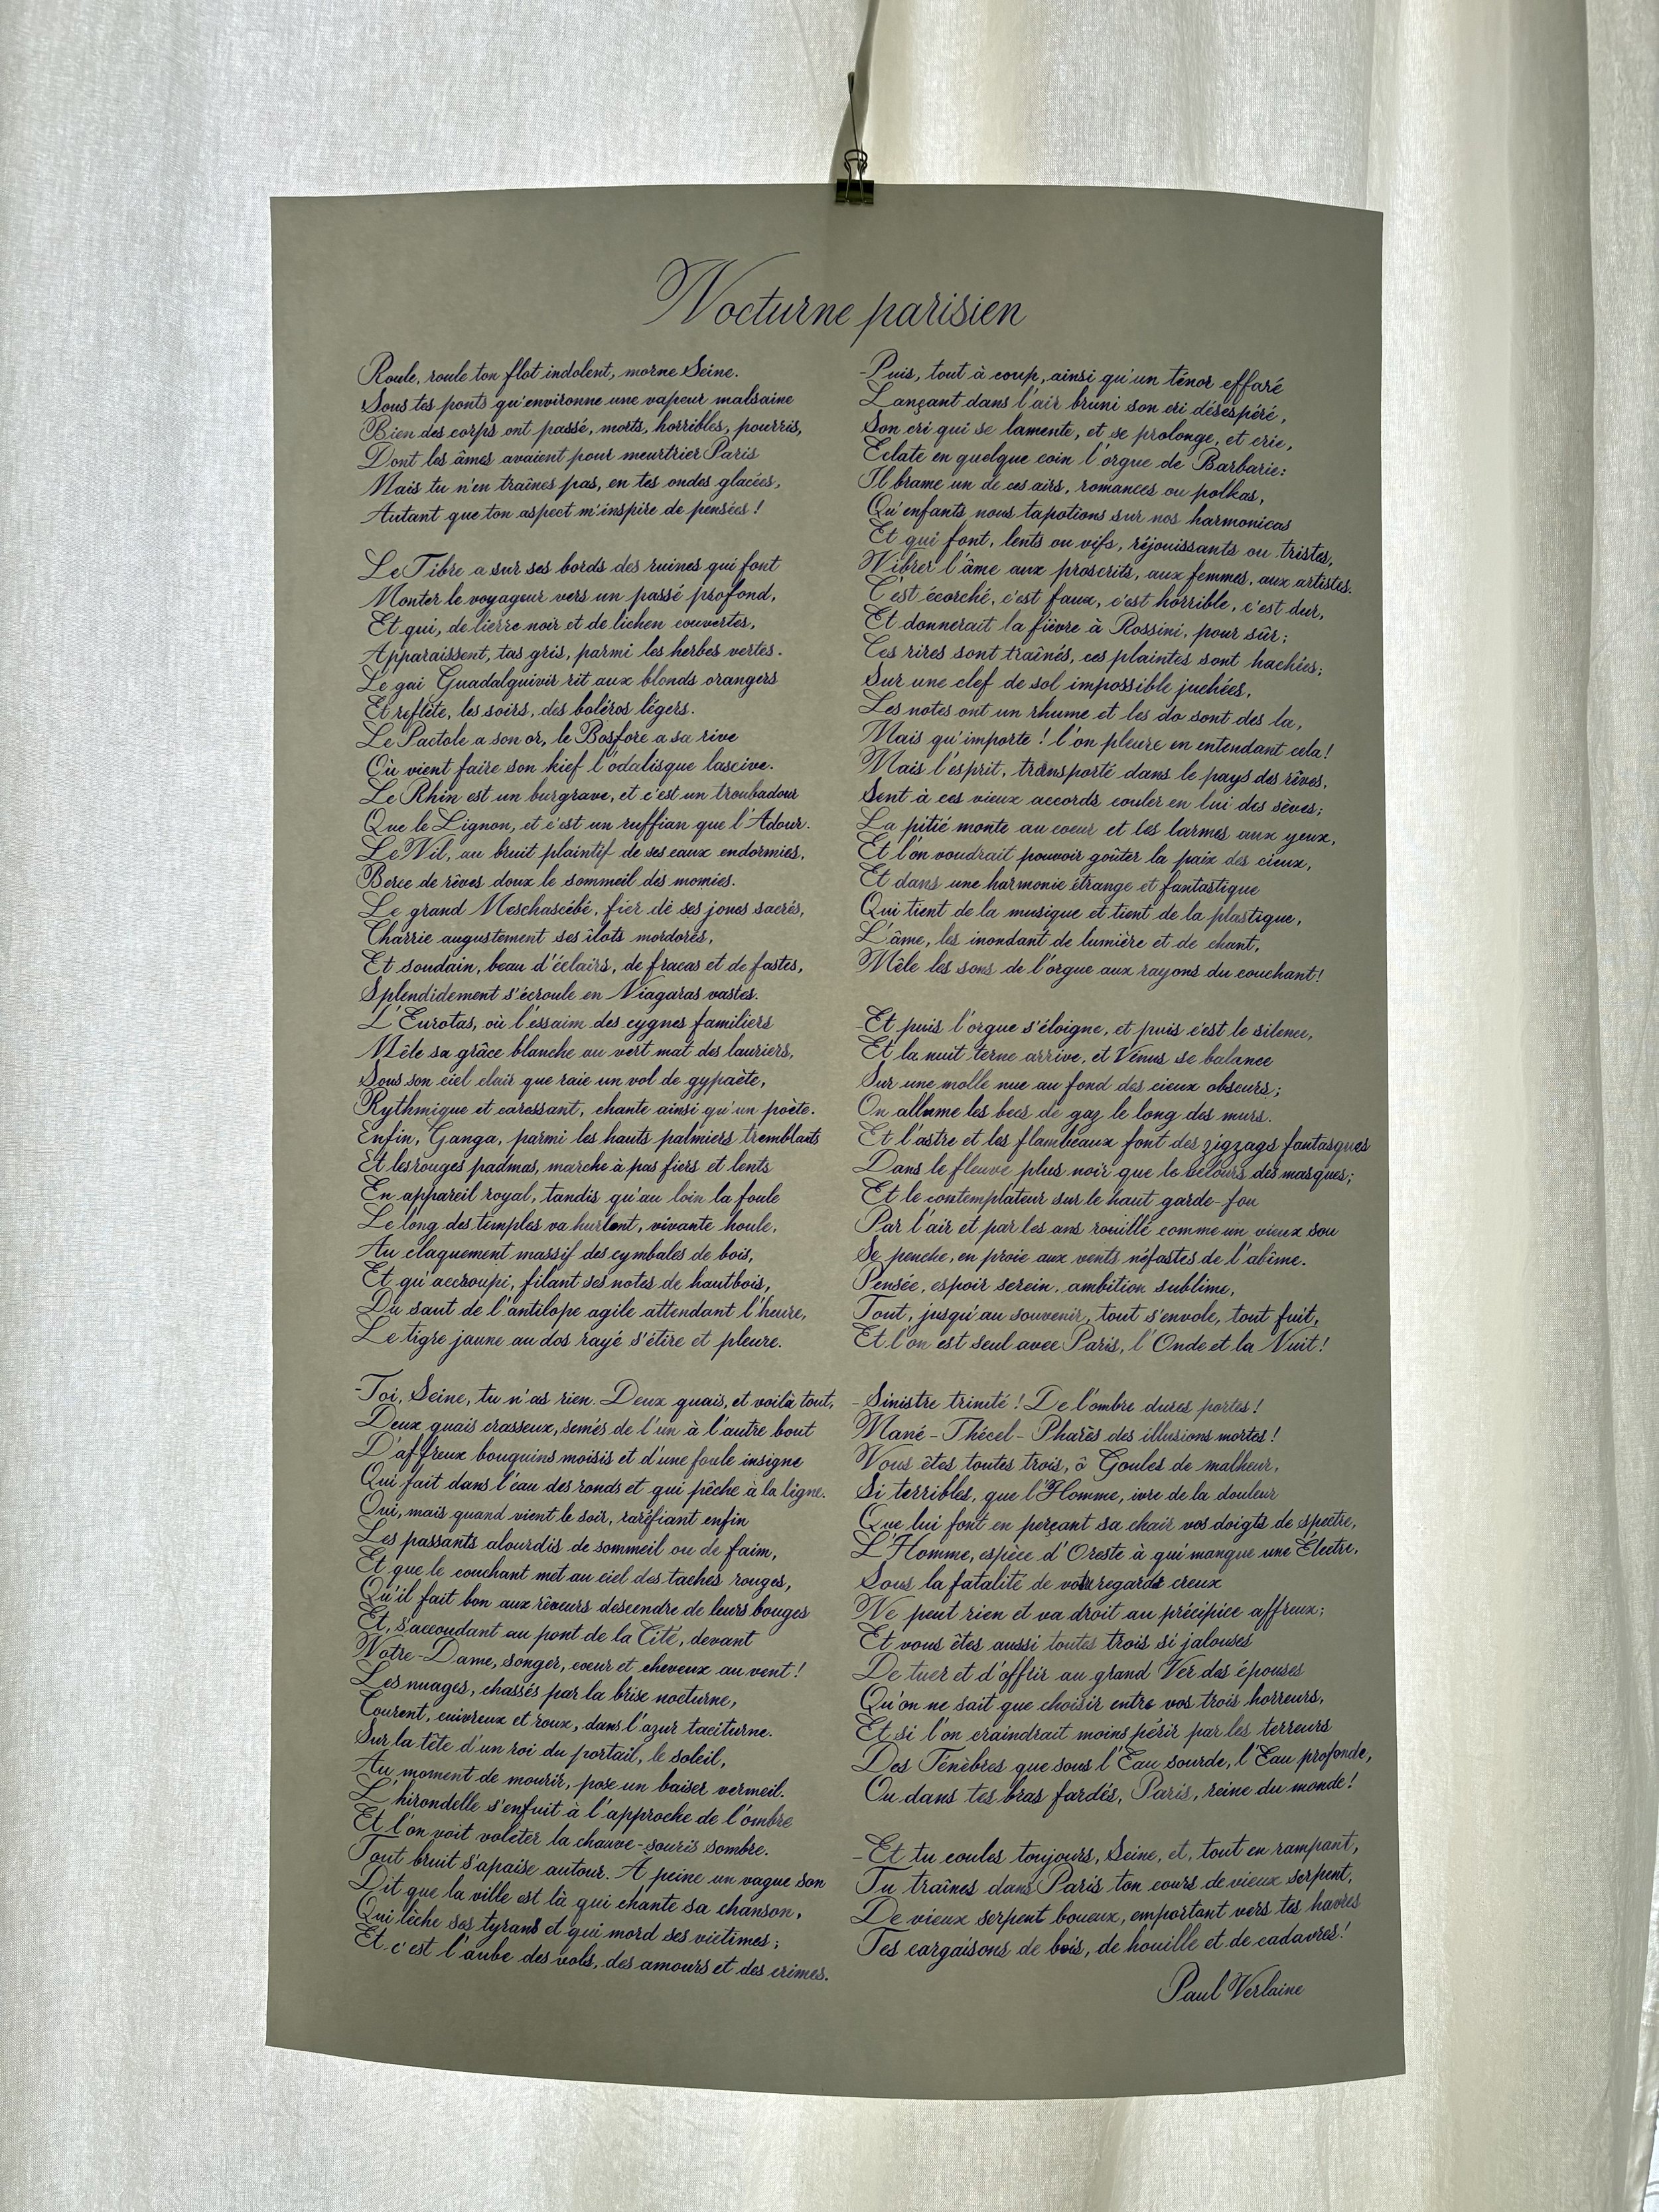 Nocturne parisien
Roule, roule ton flot indolent, morne Seine.
Sous tes ponts qu'environne une vapeur malsaine
Bien des corps ont passé, morts, horribles, pourris,
Dont les âmes avaient pour meurtrier Paris
Mais tu n'en traînes pas, en tes ondes glacées,
Autant que ton aspect m'inspire de pensées !
Le Tibre a sur ses bords des ruines qui font
Monter le voyageur vers un passé profond,
Et qui, de lierre noir et de lichen couvertes,
Apparaissent, tas gris, parmi les herbes vertes.
Le gai Guadalquivir rit aux blonds orangers
Et reflète, les soirs, des boléros légers.
Le Pactole a son or, le Bosfore a sa rive
Où vient faire son kief l'odalisque lascive.
Le Rhin est un burgrave, et c'est un troubadour
Que le Lignon, et c'est un ruffian que l'Adour.
Le Nil, au bruit plaintif de ses eaux endormies,
Berce de rêves doux le sommeil des momies.
Le grand Meschascébé, fier de ses joncs sacrés,
Charrie augustement ses îlots mordorés,
Et soudain, beau d'éclairs, de fracas et de fastes,
Splendidement s'écroule en Niagaras vastes.
L'Eurotas, où l'essaim des cygnes familiers
Mêle sa grâce blanche au vert mat des lauriers,
Sous son ciel clair que raie un vol de gypaète,
Rythmique et caressant, chante ainsi qu'un poète.
Enfin, Ganga, parmi les hauts palmiers tremblants
Et les rouges padmas, marche à pas fiers et lents
En appareil royal, tandis qu'au loin la foule
Le long des temples va hurlant, vivante houle,
Au claquement massif des cymbales de bois,
Et qu'accroupi, filant ses notes de hautbois,
Du saut de l'antilope agile attendant l'heure,
Le tigre jaune au dos rayé s'étire et pleure.
-Toi, Seine, tu n'as rien. Deux quais, et voilà tout,
Deux quais crasseux, semés de l'un à l'autre bout
D'affreux bouquins moisis et d'une foule insigne
Qui fait dans l'eau des ronds et qui pêche à la ligne.
Oui, mais quand vient le soir, raréfiant enfin
Les passants alourdis de sommeil ou de faim,
Et que le couchant met au ciel des taches rouges,
Qu'il fait bon aux rêveurs descendre de leurs bouges
Et, s'accoudant au pont de la Cité, devant
Notre-Dame, songer, coeur et cheveux au vent !
Les nuages, chassés par la brise nocturne,
Courent, cuivreux et roux, dans l'azur taciturne.
Sur la tête d'un roi du portail, le soleil,
Au moment de mourir, pose un baiser vermeil.
L'hirondelle s'enfuit à l'approche de l'ombre
Et l'on voit voleter la chauve-souris sombre.
Tout bruit s'apaise autour. A peine un vague son
Dit que la ville est là qui chante sa chanson,
Qui lèche ses tyrans et qui mord ses victimes ;
Et c'est l'aube des vols, des amours et des crimes.
-Puis, tout à coup, ainsi qu'un ténor effaré
Lançant dans l'air bruni son cri désespéré,
Son cri qui se lamente, et se prolonge, et crie,
Eclate en quelque coin l'orgue de Barbarie:
Il brame un de ces airs, romances ou polkas,
Qu'enfants nous tapotions sur nos harmonicas
Et qui font, lents ou vifs, réjouissants ou tristes,
Vibrer l'âme aux proscrits, aux femmes, aux artistes.
C'est écorché, c'est faux, c'est horrible, c'est dur,
Et donnerait la fièvre à Rossini, pour sûr ;
Ces rires sont traînés, ces plaintes sont hachées;
Sur une clef de sol impossible juchées,
Les notes ont un rhume et les do sont des la,
Mais qu'importe ! l'on pleure en entendant cela !
Mais l'esprit, transporté dans le pays des rêves,
Sent à ces vieux accords couler en lui des sèves;
La pitié monte au coeur et les larmes aux yeux,
Et l'on voudrait pouvoir goûter la paix des cieux,
Et dans une harmonie étrange et fantastique
Qui tient de la musique et tient de la plastique,
L'âme, les inondant de lumière et de chant,
Mêle les sons de l'orgue aux rayons du couchant !
-Et puis l'orgue s'éloigne, et puis c'est le silence,
Et la nuit terne arrive, et Vénus se balance
Sur une molle nue au fond des cieux obscurs;
On allume les becs de gaz le long des murs.
Et l'astre et les flambeaux font des zigzags fantasques
Dans le fleuve plus noir que le velours des masques;
Et le contemplateur sur le haut garde-fou
Par l'air et par les ans rouillé comme un vieux sou
Se penche, en proie aux vents néfastes de l'abîme.
Pensée, espoir serein, ambition sublime,
Tout, jusqu'au souvenir, tout s'envole, tout fuit,
Et l'on est seul avec Paris, l'Onde et la Nuit !
-Sinistre trinité ! De l'ombre dures portes !
Mané-Thécel-Pharès des illusions mortes !
Vous êtes toutes trois, ô Goules de malheur,
Si terribles, que l'Homme, ivre de la douleur
Que lui font en perçant sa chair vos doigts de spectre,
L'Homme, espèce d'Oreste à qui manque une Electre,
Sous la fatalité de votre regard creux
Ne peut rien et va droit au précipice affreux;
Et vous êtes aussi toutes trois si jalouses
De tuer et d'offrir au grand Ver des épouses
Qu'on ne sait que choisir entre vos trois horreurs,
Et si l'on craindrait moins périr par les terreurs
Des Ténèbres que sous l'Eau sourde, l'Eau profonde,
Ou dans tes bras fardés, Paris, reine du monde !
-Et tu coules toujours, Seine, et, tout en rampant,
Tu traînes dans Paris ton cours de vieux serpent,
De vieux serpent boueux, emportant vers tes havres
Tes cargaisons de bois, de houille et de cadavres !
Paul Verlaine